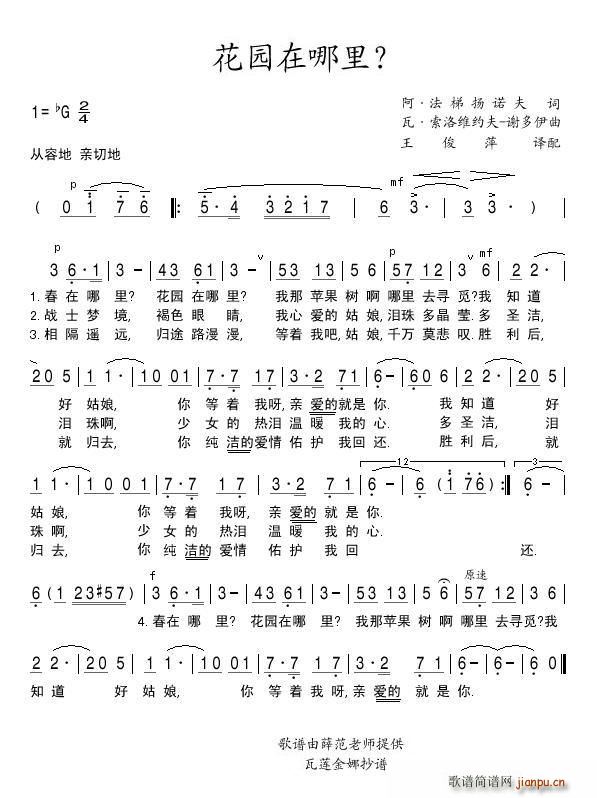 花园在哪里?
1= ♭G 2/4
阿·法梯扬诺夫 词
瓦·索洛维约夫-谢多伊曲
王俊萍 译配
从容地 亲切地
p mf
( 0 1 7 6 ‖: 5· 4 3 2 1 7 | 6 3· | 3 3· ) |
p p mf
3 6·1 | 3 - | 43 61 | 3 - | 53 13 | 5 6 | 57 12 | 3 6 | 2 2· |
1.春在哪里? 花园在哪里? 我那苹果树啊哪里去寻觅?我 知道
2.战士梦境, 褐色眼睛, 我心爱的姑娘,泪珠多晶莹.多 圣洁,
3.相隔遥远, 归途路漫漫, 等着我吧,姑娘,千万莫悲叹.胜 利后,
205 | 1 1· | 1001 | 7·7 17 | 3·2 71 | 6- | 60 6 | 2 2· | 20 5 |
好 姑娘, 你 等着我呀,亲爱的就是你. 我知道 好
泪 珠啊, 少 女的热泪温暖我的心. 多圣洁, 泪
就 归去, 你 纯洁的爱情佑护我回还. 胜利后, 就
12 3
1 1· | 1001 | 7·7 17 | 3·2 71 | 6- | 6 (1 76) :‖ 6- |
姑娘, 你 等着我呀,亲爱的就是你.
珠啊, 少 女的热泪 温暖我的心.
归去, 你 纯洁的爱情 佑护我回 还.
f 原速
6 (1 | 23#57) | 3 6·1 | 3- | 43 61 | 3- | 53 13 | 5 6 | 57 12 | 3 6 |
4.春在哪里? 花园在哪里? 我那苹果树啊哪里去寻觅?我
2 2· | 205 | 1 1· | 1001 | 7·7 17 | 3·2 71 | 6- | 6- | 6 0 ‖
知道 好 姑娘, 你 等着我呀,亲爱的就是你.
歌谱由薛范老师提供
瓦莲金娜抄谱
歌谱简谱网
jianpu.cn